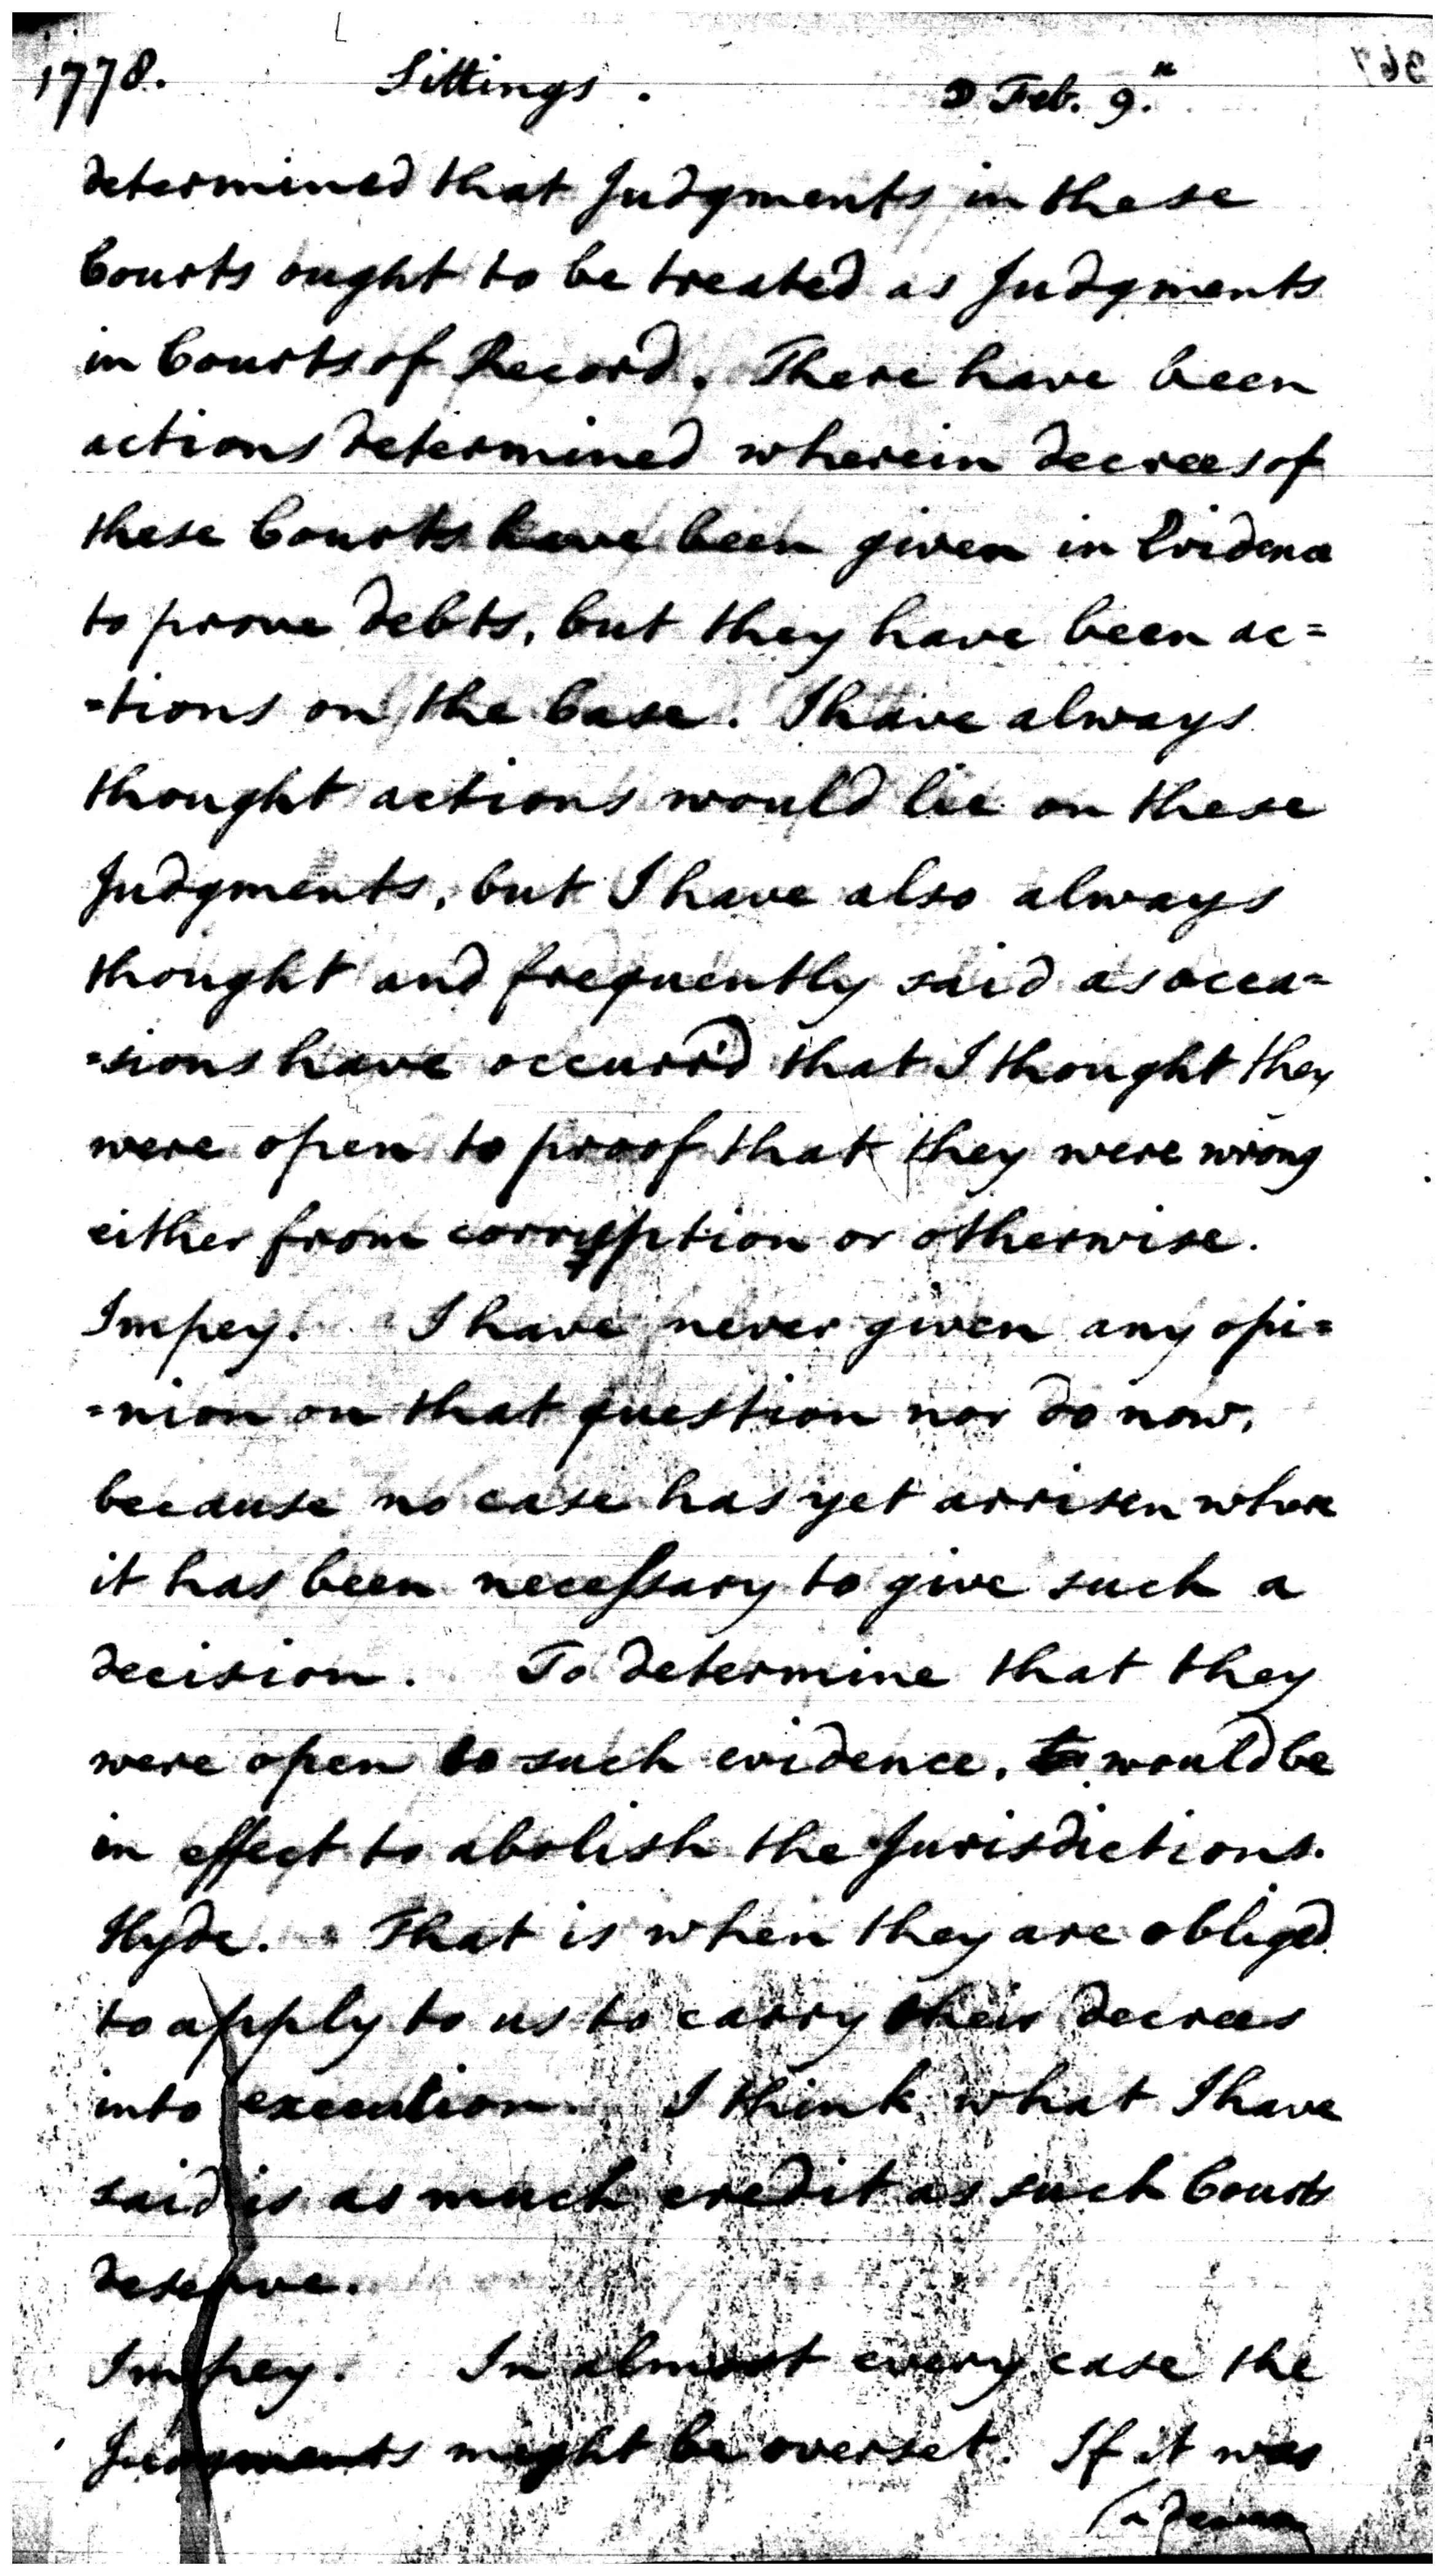 1778. Sittings. ☽ Feb. 9.th
determined that Judgments in these
Courts ought to be treated as Judgments
in Courts of Record. There have been
actions determined wherein decrees of
these Courts have been given in Evidence
to prove debts, but they have been ac=
=tions on the Case. I have always
thought actions would lie on these
Judgments, but I have also always
thought and frequently said as occa=
=sions have occurr'd that I thought they
were open to proof that they were wrong
either from corruption or otherwise.
Impey. I have never given any opi=
=nion on that question nor do now,
because no case has yet arrisen where
it has been necessary to give such a
decision. To determine that they
were open to such evidence, would be
in effect to abolish the Jurisdictions.
Hyde. That is when they are obliged
to apply to us to carry their decrees
into execution. I think what I have
said is as much credit as such Courts
deserve.
Impey. In almost every case the
Judgments might be overset. If it was